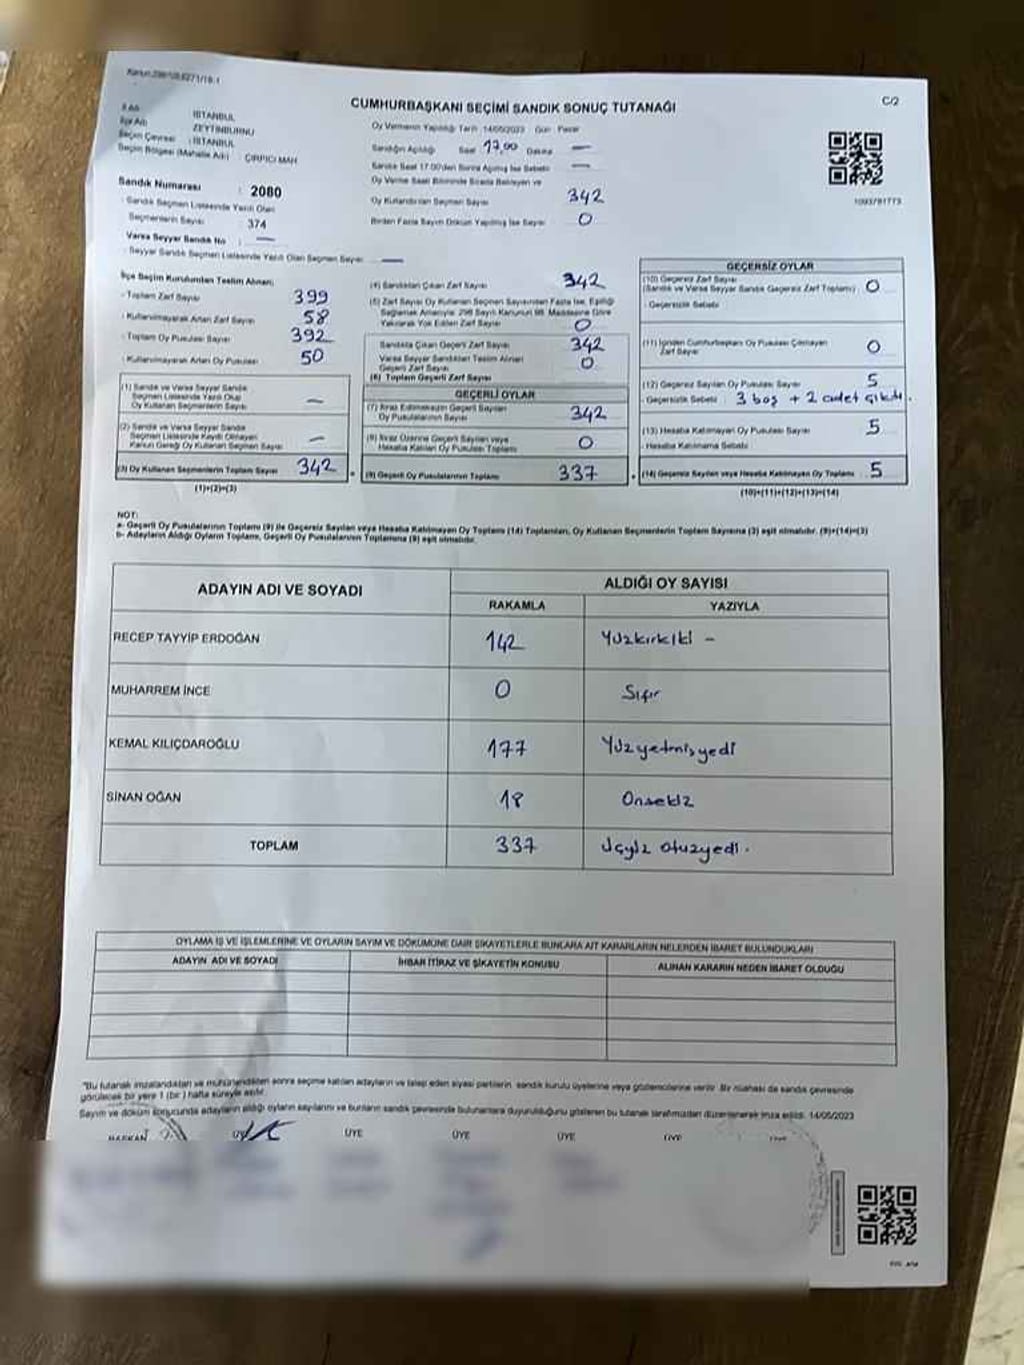 CUMHURBAŞKANI SEÇİMİ SANDIK SONUÇ TUTANAĞI
C/2
İl Adı : İSTANBUL
İlçe Adı : ZEYTİNBURNU
Seçim Çevresi : İSTANBUL
Seçim Bölgesi (Mahalle Adı) : ÇIRPICI MAH
Oy Vermenin Yapıldığı Tarih 14/05/2023 Gün Pazar
Sandığın Açıldığı Saat 17,00 Dakika —
Sandık Saat 17:00'den Sonra Açılmış İse Sebebi —
Oy Verme Saati Bitiminde Sırada Bekleyen ve
Oy Kullandırılan Seçmen Sayısı 342
Birden Fazla Sayım Döküm Yapılmış İse Sayısı 0
1093781773
Sandık Numarası : 2080
Sandık Seçmen Listesinde Yazılı Olan
Seçmenlerin Sayısı 374
Varsa Seyyar Sandık No : —
Seyyar Sandık Seçmen Listesinde Yazılı Olan Seçmen Sayısı —
İlçe Seçim Kurulundan Teslim Alınan;
- Toplam Zarf Sayısı 399
- Kullanılmayarak Artan Zarf Sayısı 58
- Toplam Oy Pusulası Sayısı 392
- Kullanılmayarak Artan Oy Pusulası 50
(1) Sandık ve Varsa Seyyar Sandık
Seçmen Listesinde Yazılı Olup
Oy Kullanan Seçmenlerin Sayısı —
(2) Sandık ve Varsa Seyyar Sandık
Seçmen Listesinde Kayıtlı Olmayan
Kanun Gereği Oy Kullanan Seçmen Sayısı —
(3) Oy Kullanan Seçmenlerin Toplam Sayısı 342
(1)+(2)=(3)
(4) Sandıktan Çıkan Zarf Sayısı 342
(5) Zarf Sayısı Oy Kullanan Seçmen Sayısından Fazla İse, Eşitliği
Sağlamak Amacıyla; 298 Sayılı Kanunun 98. Maddesine Göre
Yakılarak Yok Edilen Zarf Sayısı 0
Sandıkta Çıkan Geçerli Zarf Sayısı 342
Varsa Seyyar Sandıktan Teslim Alınan
Geçerli Zarf Sayısı 0
(6) Toplam Geçerli Zarf Sayısı
GEÇERLİ OYLAR
(7) İtiraz Edilmeksizin Geçerli Sayılan
Oy Pusulalarının Sayısı 342
(8) İtiraz Üzerine Geçerli Sayılan veya
Hesaba Katılan Oy Pusulası Toplamı 0
(9) Geçerli Oy Pusulalarının Toplamı 337
GEÇERSİZ OYLAR
(10) Geçersiz Zarf Sayısı
(Sandık ve Varsa Seyyar Sandık Geçersiz Zarf Toplamı) 0
- Geçersizlik Sebebi
(11) İçinden Cumhurbaşkanı Oy Pusulası Çıkmayan
Zarf Sayısı 0
(12) Geçersiz Sayılan Oy Pusulası Sayısı 5
- Geçersizlik Sebebi 3 boş + 2 adet çıktı.
(13) Hesaba Katılmayan Oy Pusulası Sayısı 5
- Hesaba Katılmama Sebebi
(14) Geçersiz Sayılan veya Hesaba Katılmayan Oy Toplamı 5
(10)+(11)+(12)+(13)=(14)
NOT:
a- Geçerli Oy Pusulalarının Toplamı (9) ile Geçersiz Sayılan veya Hesaba Katılmayan Oy Toplamı (14) Toplamları, Oy Kullanan Seçmenlerin Toplam Sayısına (3) eşit olmalıdır. (9)+(14)=(3)
b- Adayların Aldığı Oyların Toplamı, Geçerli Oy Pusulalarının Toplamına (9) eşit olmalıdır.
ADAYIN ADI VE SOYADI
ALDIĞI OY SAYISI
RAKAMLA YAZIYLA
RECEP TAYYİP ERDOĞAN 142 Yüzkırkiki –
MUHARREM İNCE 0 Sıfır
KEMAL KILIÇDAROĞLU 177 Yüzyetmişyedi
SİNAN OĞAN 18 Onsekiz
TOPLAM 337 Üçyüz otuzyedi.
OYLAMA İŞ VE İŞLEMLERİNE VE OYLARIN SAYIM VE DÖKÜMÜNE DAİR ŞİKAYETLERLE BUNLARA AİT KARARLARIN NELERDEN İBARET BULUNDUKLARI
ADAYIN ADI VE SOYADI İHBAR İTİRAZ VE ŞİKAYETİN KONUSU ALINAN KARARIN NEDEN İBARET OLDUĞU
"Bu tutanak imzalandıktan ve mühürlendikten sonra seçime katılan adayların ve talep eden siyasi partilerin, sandık kurulu üyelerine veya gözlemcilerine verilir. Bir nüshası da sandık çevresinde
görülecek bir yere 1 (bir) hafta süreyle asılır.
Sayım ve döküm sonucunda adayların aldığı oyların sayılarını ve bunların sandık çevresinde bulunanlara duyurulduğunu gösteren bu tutanak tarafımızdan düzenlenerek imza edildi. 14/05/2023
BAŞKAN ÜYE ÜYE ÜYE ÜYE ÜYE ÜYE